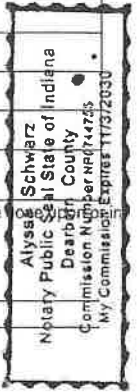 Alyssa Schwarz
Notary Public Seal State of Indiana
Dearborn County
Commission Number NP0744755
My Commission Expires 11/3/2030